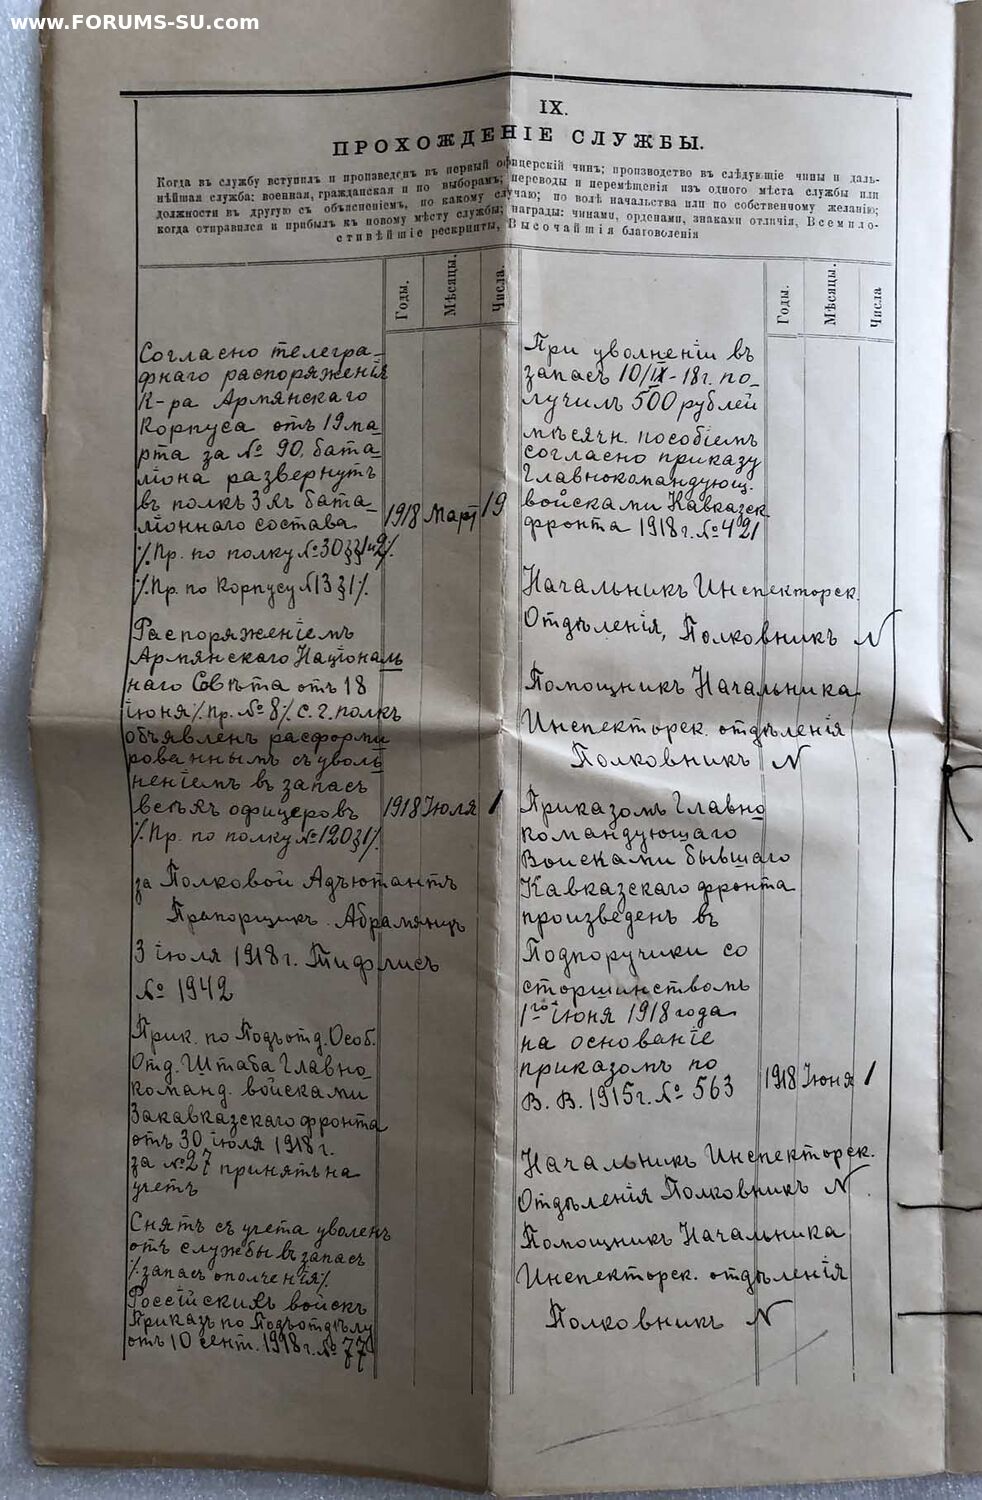 www.FORUMS-SU.com
IX.
ПРОХОЖДЕНІЕ СЛУЖБЫ.
Когда въ службу вступилъ и произведенъ въ первый офицерскій чинъ; производство въ слѣдующіе чины и даль-
нѣйшая служба: военная, гражданская и по выборамъ; переводы и перемѣщенія изъ одного мѣста службы или
должности въ другую съ объясненіемъ, по какому случаю; по волѣ начальства или по собственному желанію;
когда отправился и прибылъ къ новому мѣсту службы; награды: чинами, орденами, знаками отличія, Всемило-
стивѣйшіе рескрипты, Высочайшія благоволенія
Годы.
Мѣсяцы.
Числа.
Согласно телегра-
фнаго распоряженія
К-ра Армянскаго
Корпуса отъ 19 ма-
рта за № 90, бата-
ліона развернутъ
въ полкъ 3хъ бата-
ліоннаго состава 1918 Март 19
%Пр. по полку №30 §§1и2%.
%Пр. по Корпусу №13 §1%.
Распоряженіемъ
Армянскаго Національ
наго Совѣта отъ 18
іюня %Пр. № 8% с. г. полкъ
объявленъ расформи
рованнымъ съ уволь
неніемъ въ запасъ
всѣхъ офицеровъ 1918 Іюля 1
%Пр. по полку №120§1%.
за Полковой Адъютантъ
Прапорщикъ Абрамянцъ
3 іюля 1918 г. Тифлисъ
№ 1942
Прик. по Подъотд. Особ.
Отд. Штаба Главно-
команд. войсками
Закавказскаго фронта
отъ 30 іюля 1918 г.
за №27 принятъ на
учетъ
Снятъ съ учета уволенъ
отъ службы въ запасъ
%запасъ ополченія%.
Россійскихъ войскъ
Приказъ по Подъотдѣлу
отъ 10 сент. 1918 г. № 77
Годы.
Мѣсяцы.
Числа
При уволненіи въ
запасъ 10/IX-18г. по-
лучилъ 500 рублей
мѣсячн. пособіемъ
согласно приказу
Главнокомандующ.
войсками Кавказск.
фронта 1918 г. № 421
Начальникъ Инспекторск.
Отдѣленія, Полковникъ N
Помощникъ Начальника
Инспекторск. отдѣленія
Полковникъ N
Приказомъ Главно
командующаго
Войсками бывшаго
Кавказскаго фронта
произведенъ въ
Подпоручики со
сторшинствомъ
1го іюня 1918 года
на основаніе
приказомъ по
В. В. 1915 г. № 563 1918 Іюня 1
Начальникъ Инспекторск.
Отдѣленія Полковникъ N.
Помощникъ Начальника
Инспекторск. отдѣленія
Полковникъ N